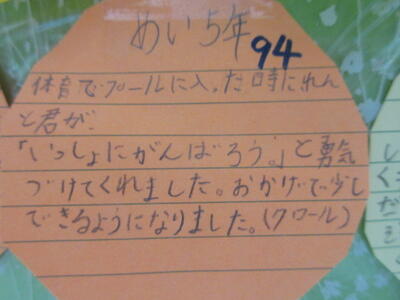 めい5年
94
体育でプールに入った時にれん
と君が、
「いっしょにがんばろう。」と勇気
づけてくれました。おかげで少し
できるようになりました。(クロール)
し
く
だ